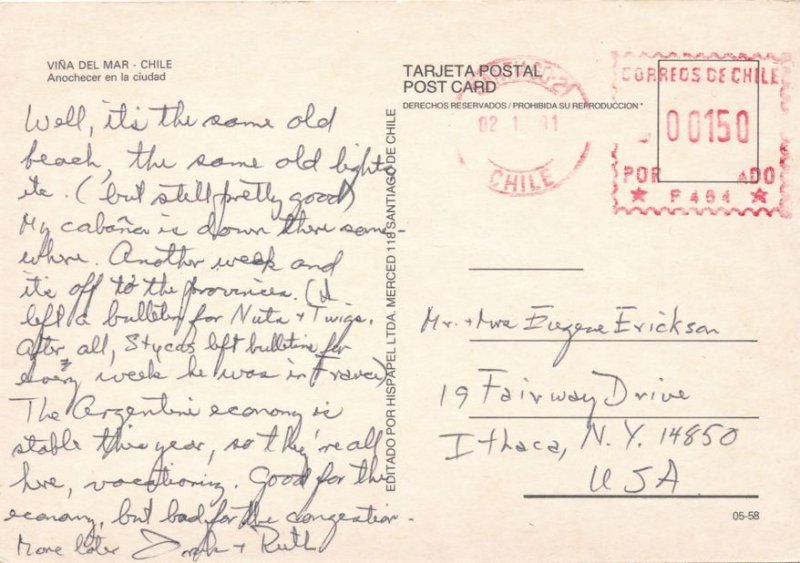 VIÑA DEL MAR - CHILE
Anochecer en la ciudad
Well, it's the same old
beach, the same old lights
etc. (but still pretty good)
My cabaña is down there some-
where. Another week and
it's off to the provinces. (I
left a bulletin for Nuts + Twigs.
After all, Stycos left bulletins for
every week he was in France)
The Argentine economy is
stable this year, so they're all
here, vacationing. Good for the
economy, but bad for the congestion.
More later + Ruth
EDITADO POR HISPAPEL LTDA. MERCED 118 SANTIAGO DE CHILE
TARJETA POSTAL
POST CARD
DERECHOS RESERVADOS / PROHIBIDA SU REPRODUCCION
02 1
CHILE
CORREOS DE CHILE
00150
POR ADO
F 464
Mr. + Mrs Eugene Erickson
19 Fairway Drive
Ithaca, N.Y. 14850
USA
05-58